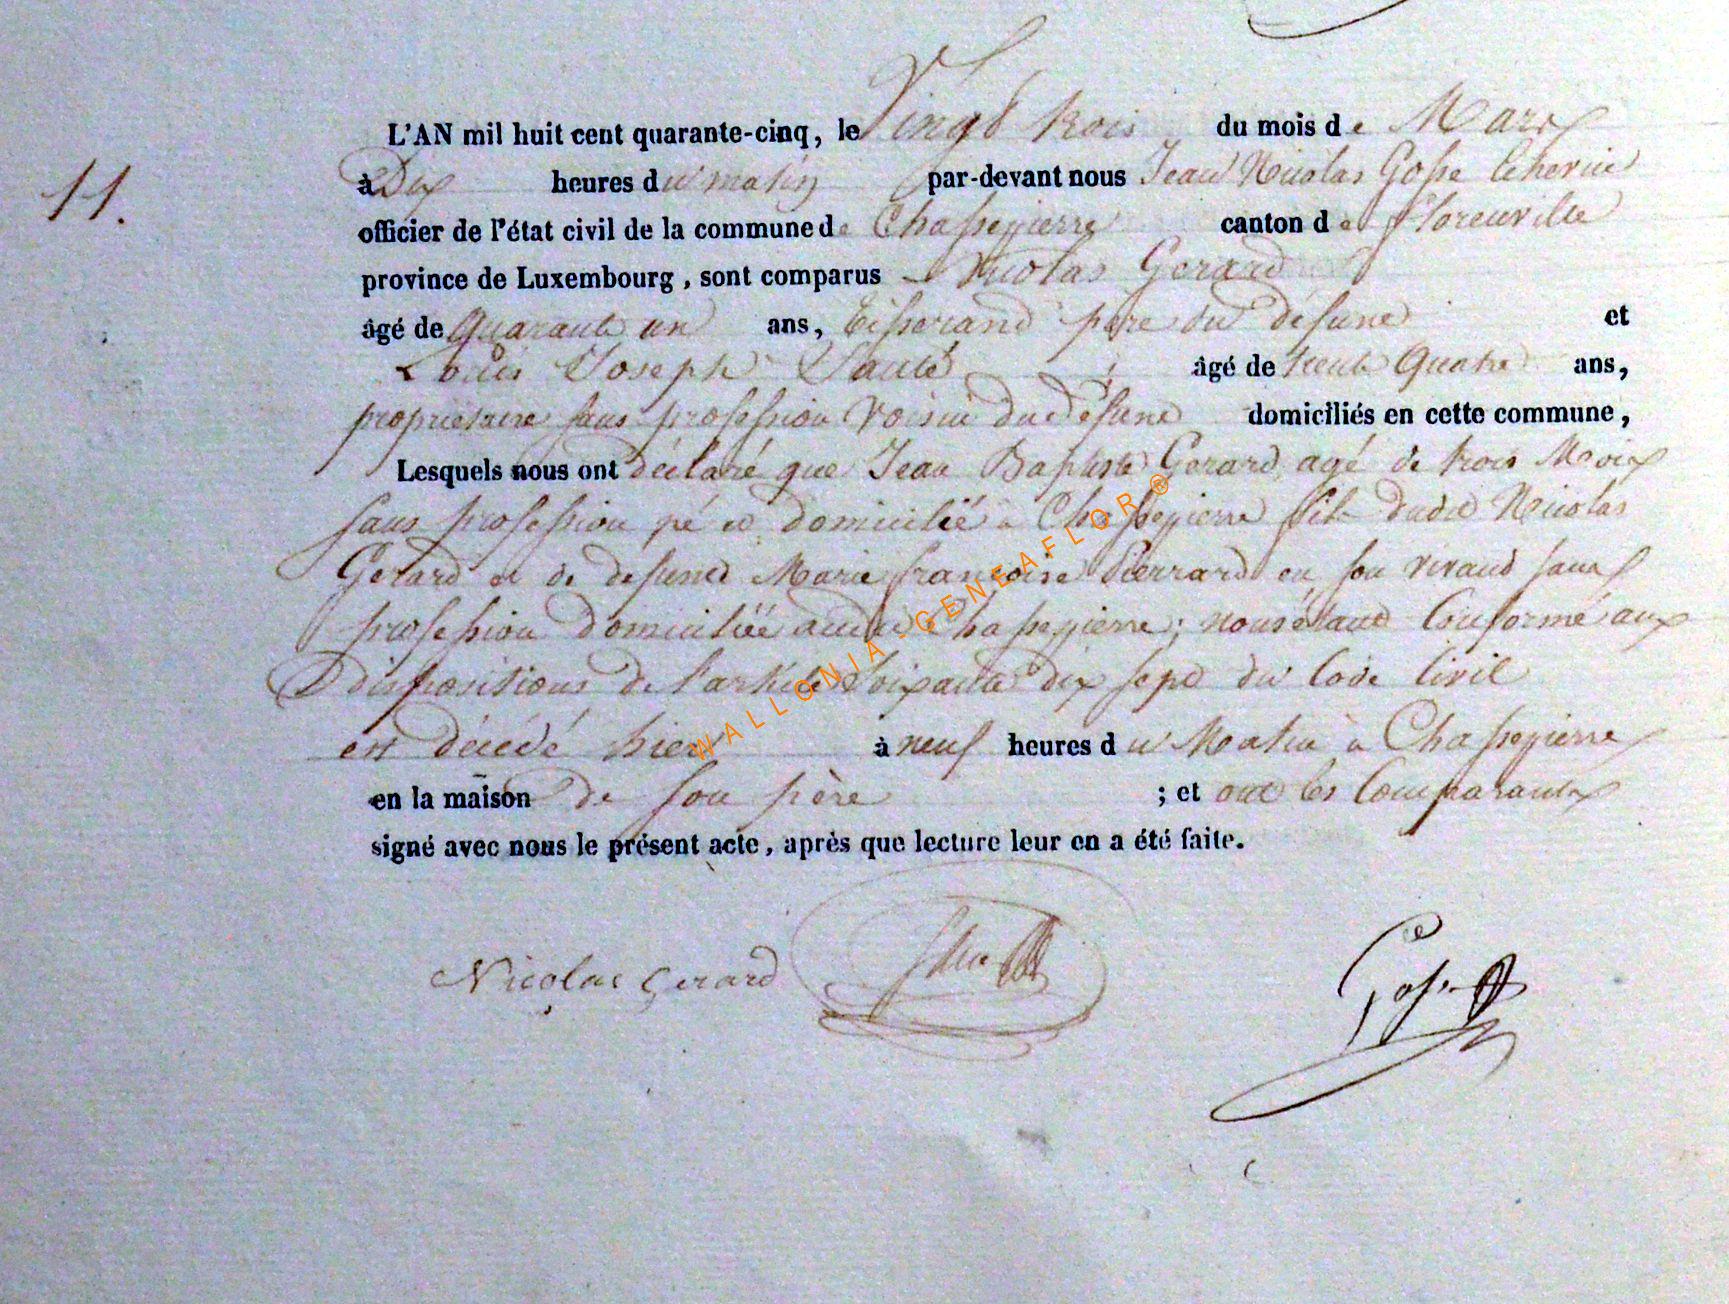 L'AN mil huit cent quarante-cinq, le Vingt trois du mois de Mars
11.
à Dix heures du matin par-devant nous Jean Nicolas Gosse Echevin
officier de l'état civil de la commune de Chassepierre canton de Florenville
province de Luxembourg, sont comparus Nicolas Gerard
âgé de Quarante un ans, Tisserand père du défunt et
Louis Joseph âgé de trente Quatre ans,
propriétaire sans profession voisin du défunt domiciliés en cette commune,
Lesquels nous ont déclaré que Jean Baptiste Gerard, agé de trois Mois
sans profession né et domicilié à Chassepierre fils dudit Nicolas
Gerard et de defunte Marie françoise Pierrard en son vivant sans
profession domiciliée audit Chassepierre; nous étant Conformé aux
dispositions de l'article Soixante dix sept du Code Civil
est décédé hier à neuf heures du Matin à Chassepierre
en la maison de son père ; et ont les Comparants
signé avec nous le présent acte, après que lecture leur en a été faite.
Nicolas Gerard
Gosse
WALLONIA-GENEAFLOR®